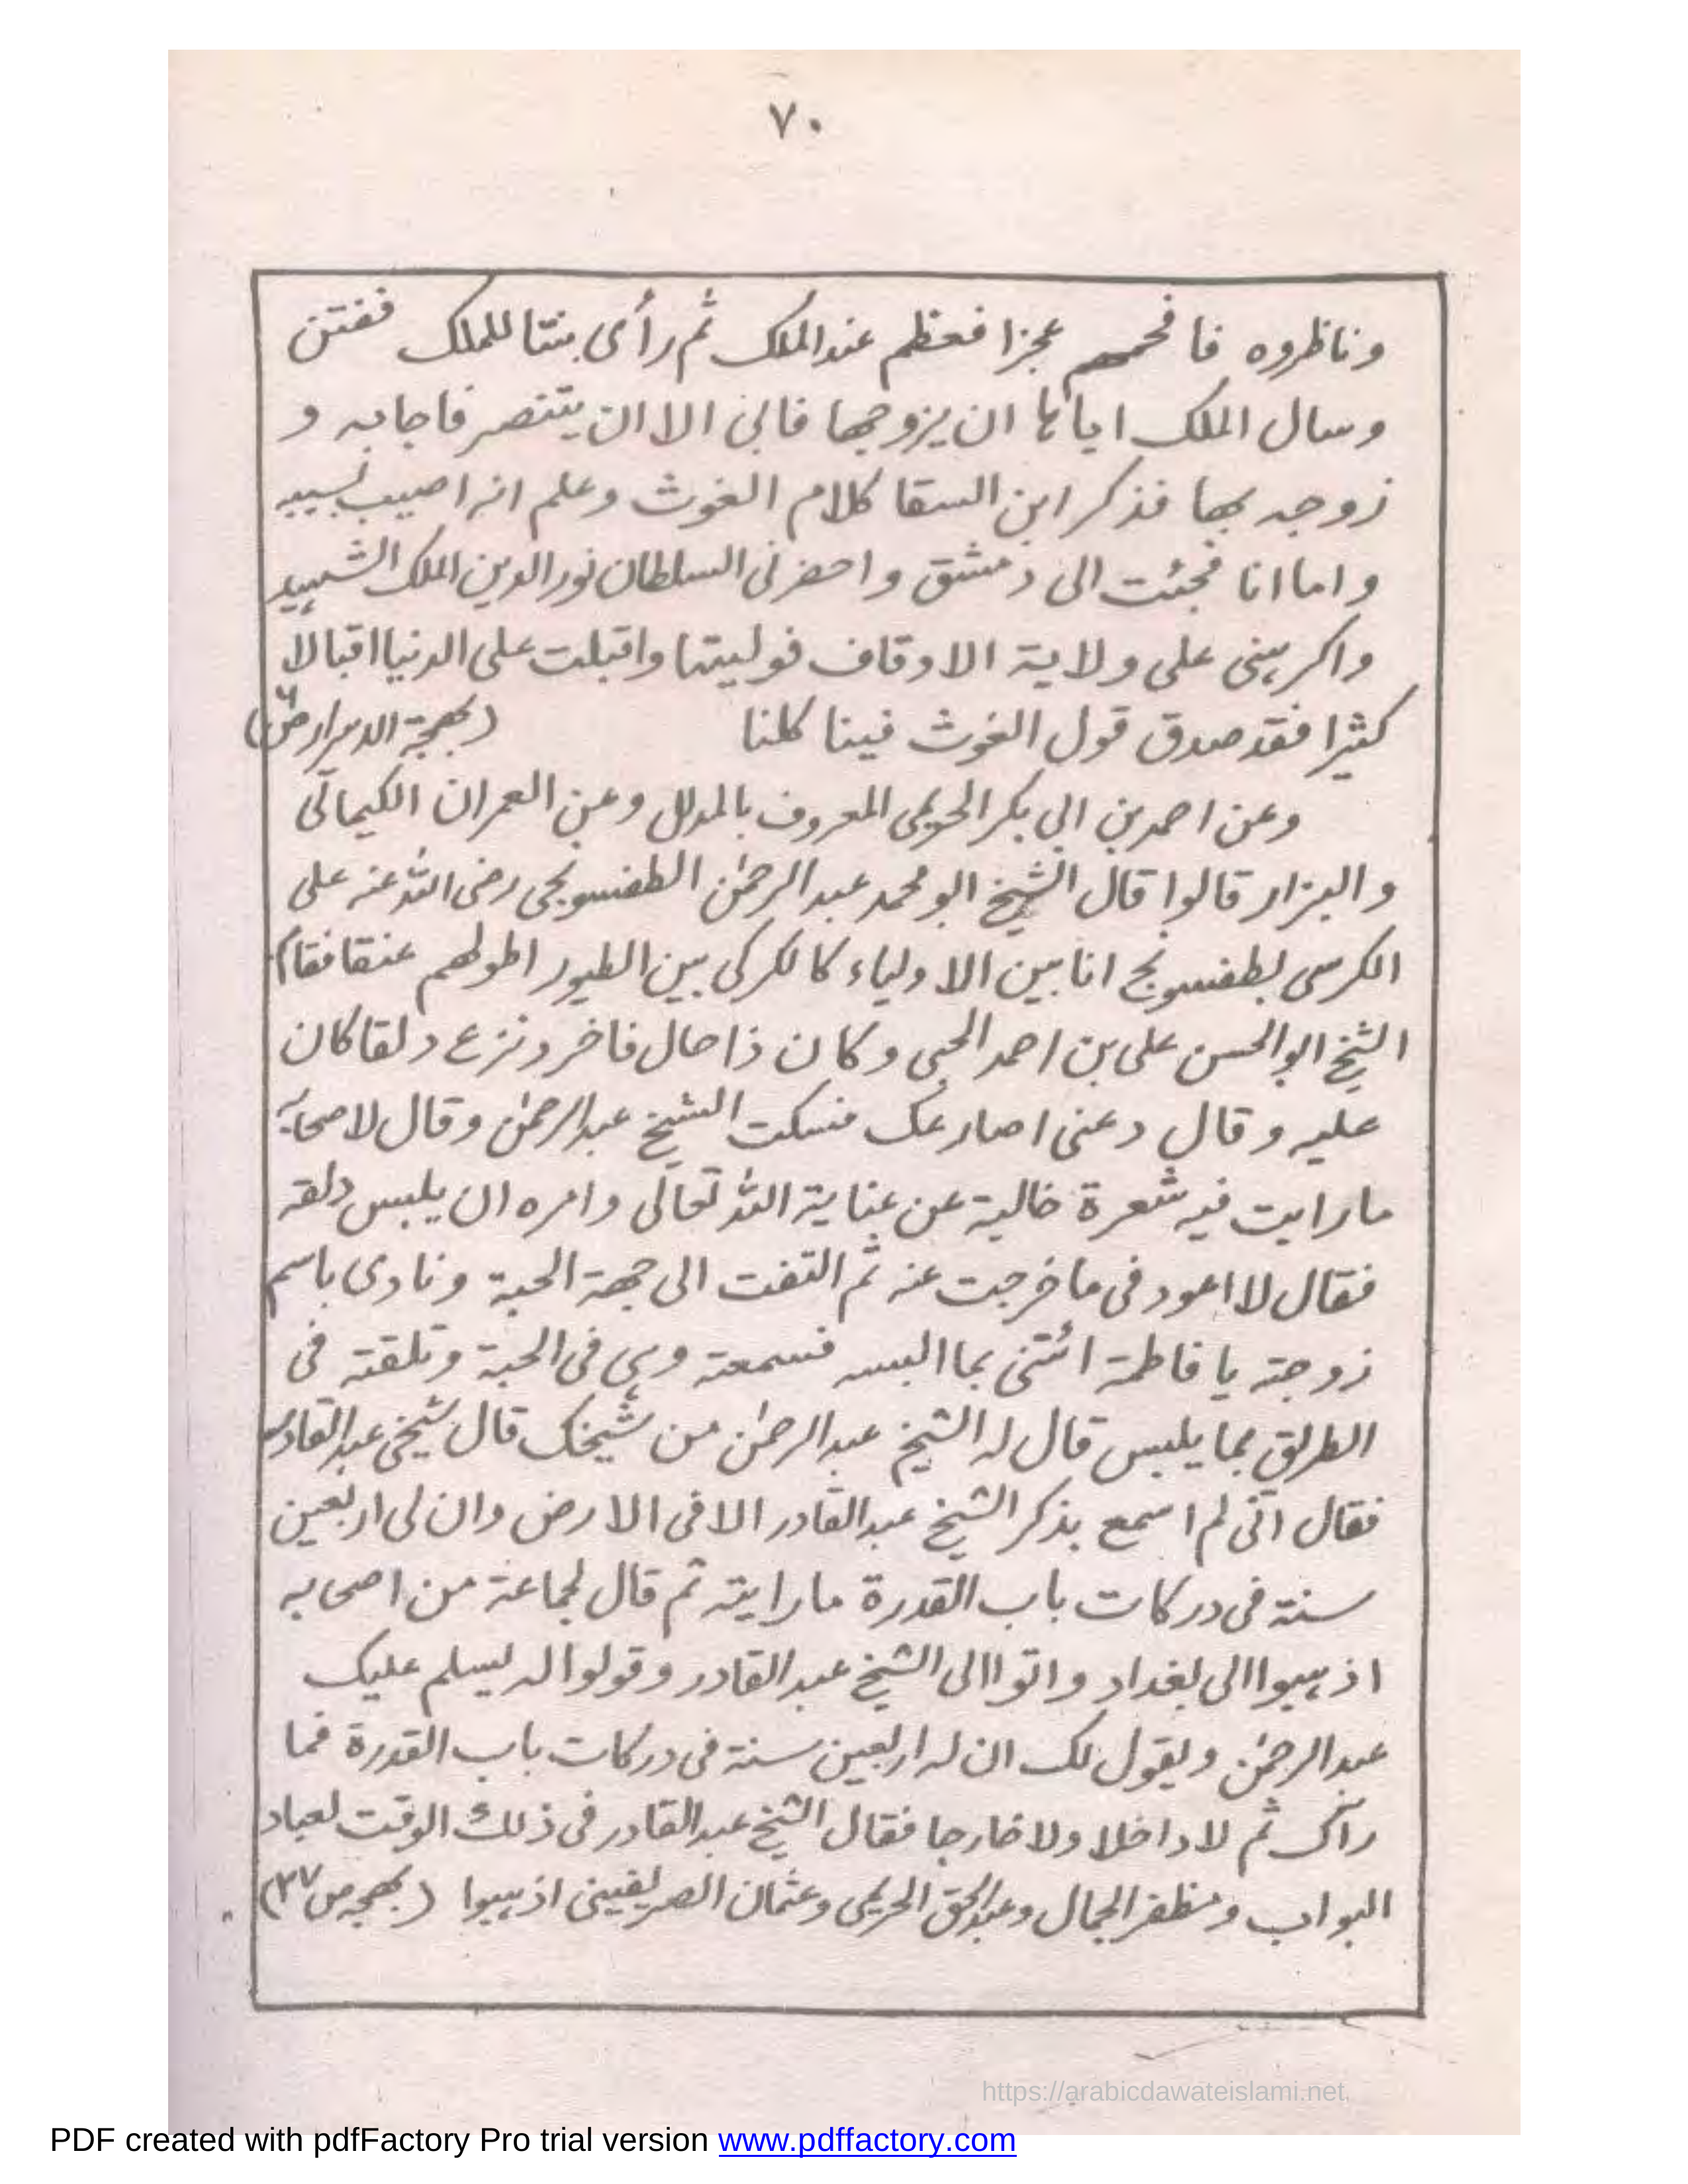 ٧٠
وناظروه فافحمهم عجزا فعظم عند الملك ثم رأى بنتا للملك ففتن
وسال الملك اياها ان يزوجها فابى الا ان يتنصر فاجابه و
زوجه بها فذكر ابن السقا كلام الغوث وعلم انه اصيب بسببه
واما انا فجئت الى دمشق واحضرنى السلطان نور الدين الملك الشهيد
واكرهنى على ولاية الاوقاف فوليتها واقبلت على الدنيا اقبالا
كثيرا فقد صدق قول الغوث فينا كلنا (بهجة الاسرار ص٦)
وعن احمد بن ابي بكر الحريمى المعروف بالمدلل وعن العمران الكيمآتى
والبزار قالوا قال الشيخ ابو محمد عبد الرحمٰن الطفسونجى رضى الله عنه على
الكرسى بطفسونج انا بين الاولياء كالكركى بين الطيور اطولهم عنقا فقام
الشيخ ابو الحسن على بن احمد الحبى وكان ذا حال فاخر ونزع دلقا كان
عليه وقال دعنى اصارعك فسكت الشيخ عبد الرحمٰن وقال لاصحابه
ما رايت فيه شعرة خالية عن عناية الله تعالى وامره ان يلبس دلقه
فقال لا اعود فى ما خرجت عنه ثم التفت الى جهة الحبة ونادى باسم
زوجته يا فاطمة ائتنى بما البسه فسمعته وهى فى الحبة وتلقته فى
الطريق بما يلبس قال له الشيخ عبد الرحمٰن من شيخك قال شيخى عبد القادر
فقال انى لم اسمع بذكر الشيخ عبد القادر الا فى الارض وان لى اربعين
سنة فى دركات باب القدرة ما رايته ثم قال لجماعة من اصحابه
اذهبوا الى بغداد واتوا الى الشيخ عبد القادر وقولوا له يسلم عليك
عبد الرحمٰن ويقول لك ان له اربعين سنة فى دركات باب القدرة فما
رآك ثم لا داخلا ولا خارجا فقال الشيخ عبد القادر فى ذلك الوقت لعباد
البواب ومظفر الجمال وعبد الحق الحريمى وعثمان الصريفينى اذهبوا (بهجه ص٢٧)
https://arabicdawateislami.net
PDF created with pdfFactory Pro trial version www.pdffactory.com